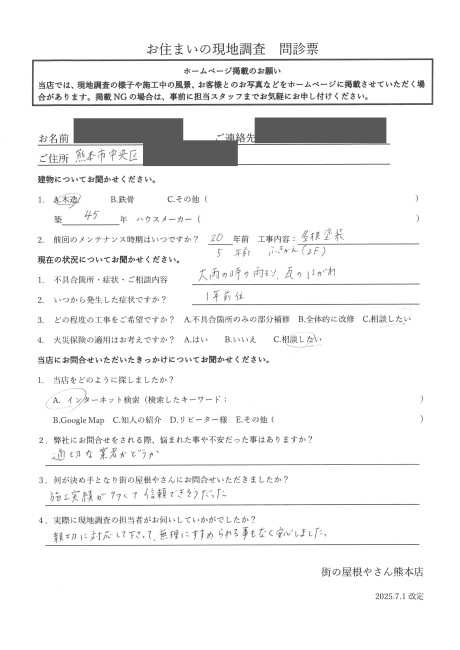 お住まいの現地調査　問診票
ホームページ掲載のお願い
当店では、現地調査の様子や施工中の風景、お客様とのお写真などをホームページに掲載させていただく場
合があります。掲載 NG の場合は、事前に担当スタッフまでお気軽にお申し付けください。
お名前　ご連絡先
ご住所　熊本市中央区
建物についてお聞かせください。
1.　A.木造　B.鉄骨　C.その他（　）
築　45　年　ハウスメーカー（　）
2.　前回のメンテナンス時期はいつですか？　20　年前　工事内容：屋根塗装
5　年前　ふきかえ(2F)
現在の状況についてお聞かせください。
1.　不具合箇所・症状・ご相談内容　大雨の時の雨もり、瓦のはがれ
2.　いつから発生した症状ですか？　1年前位
3.　どの程度の工事をご希望ですか？　A.不具合箇所のみの部分補修　B.全体的に改修　C.相談したい
4.　火災保険の適用はお考えですか？　A.はい　B.いいえ　C.相談したい
当店にお問合せいただいたきっかけについてお聞かせください。
1.　当店をどのように探しましたか？
A. インターネット検索（検索したキーワード：　）
B.Google Map　C.知人の紹介　D.リピーター様　E.その他（　）
2、弊社にお問合せをされる際、悩まれた事や不安だった事はありますか？
適切な業者かどうか
3、何が決め手となり街の屋根やさんにお問合せいただきましたか？
施工実績が多くて信頼できそうだった
4、実際に現地調査の担当者がお伺いしていかがでしたか？
親切に対応して下さって、無理にすすめられる事もなく安心しました。
街の屋根やさん熊本店
2025.7.1 改定